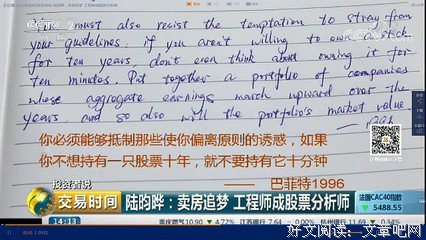 must also resist the temptation to stray from
your guidelines: if you aren't willing to own a stock
for ten years, don't even think about owning it for
ten minutes. Put together a portfolio of companies
whose aggregate earnings march upward over the
years and so also will the portfolio's market value
你必须能够抵制那些使你偏离原则的诱惑，如果
你不想持有一只股票十年，就不要持有它十分钟
—— 巴菲特1996
投资者说
交易时间
陆昀晔：卖房追梦 工程师成股票分析师
法国CAC40指数
5488.55
14:13
4.72%
江苏银行 7.64
-0.00%
杭州银行 11.69
0.84%
好文阅读:—文章吧网